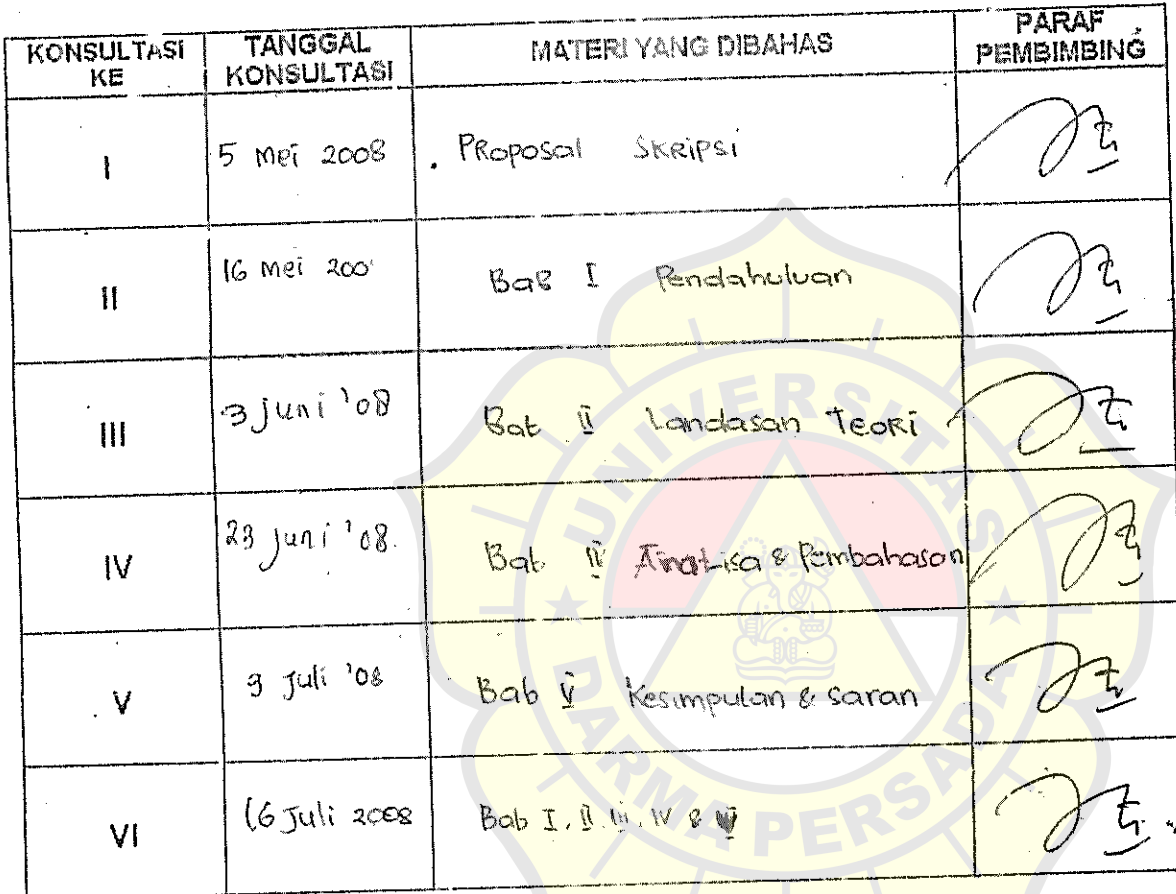 KONSULTASI KE
TANGGAL KONSULTASI
MATERI YANG DIBAHAS
PARAF PEMBIMBING
I
5 Mei 2008
. PRoposal SkRipsi
II
16 Mei 200
BaB I Pendahuluan
III
3 juni '08
Bab II Landasan TeoRi
IV
23 juni '08.
Bab Analisa & Pembahasan
V
9 Juli '08
Bab V Kesimpulan & saran
VI
16 Juli 2008
Bab I, II, III, IV & V
UNIVERSITAS
DARMA PERSADA